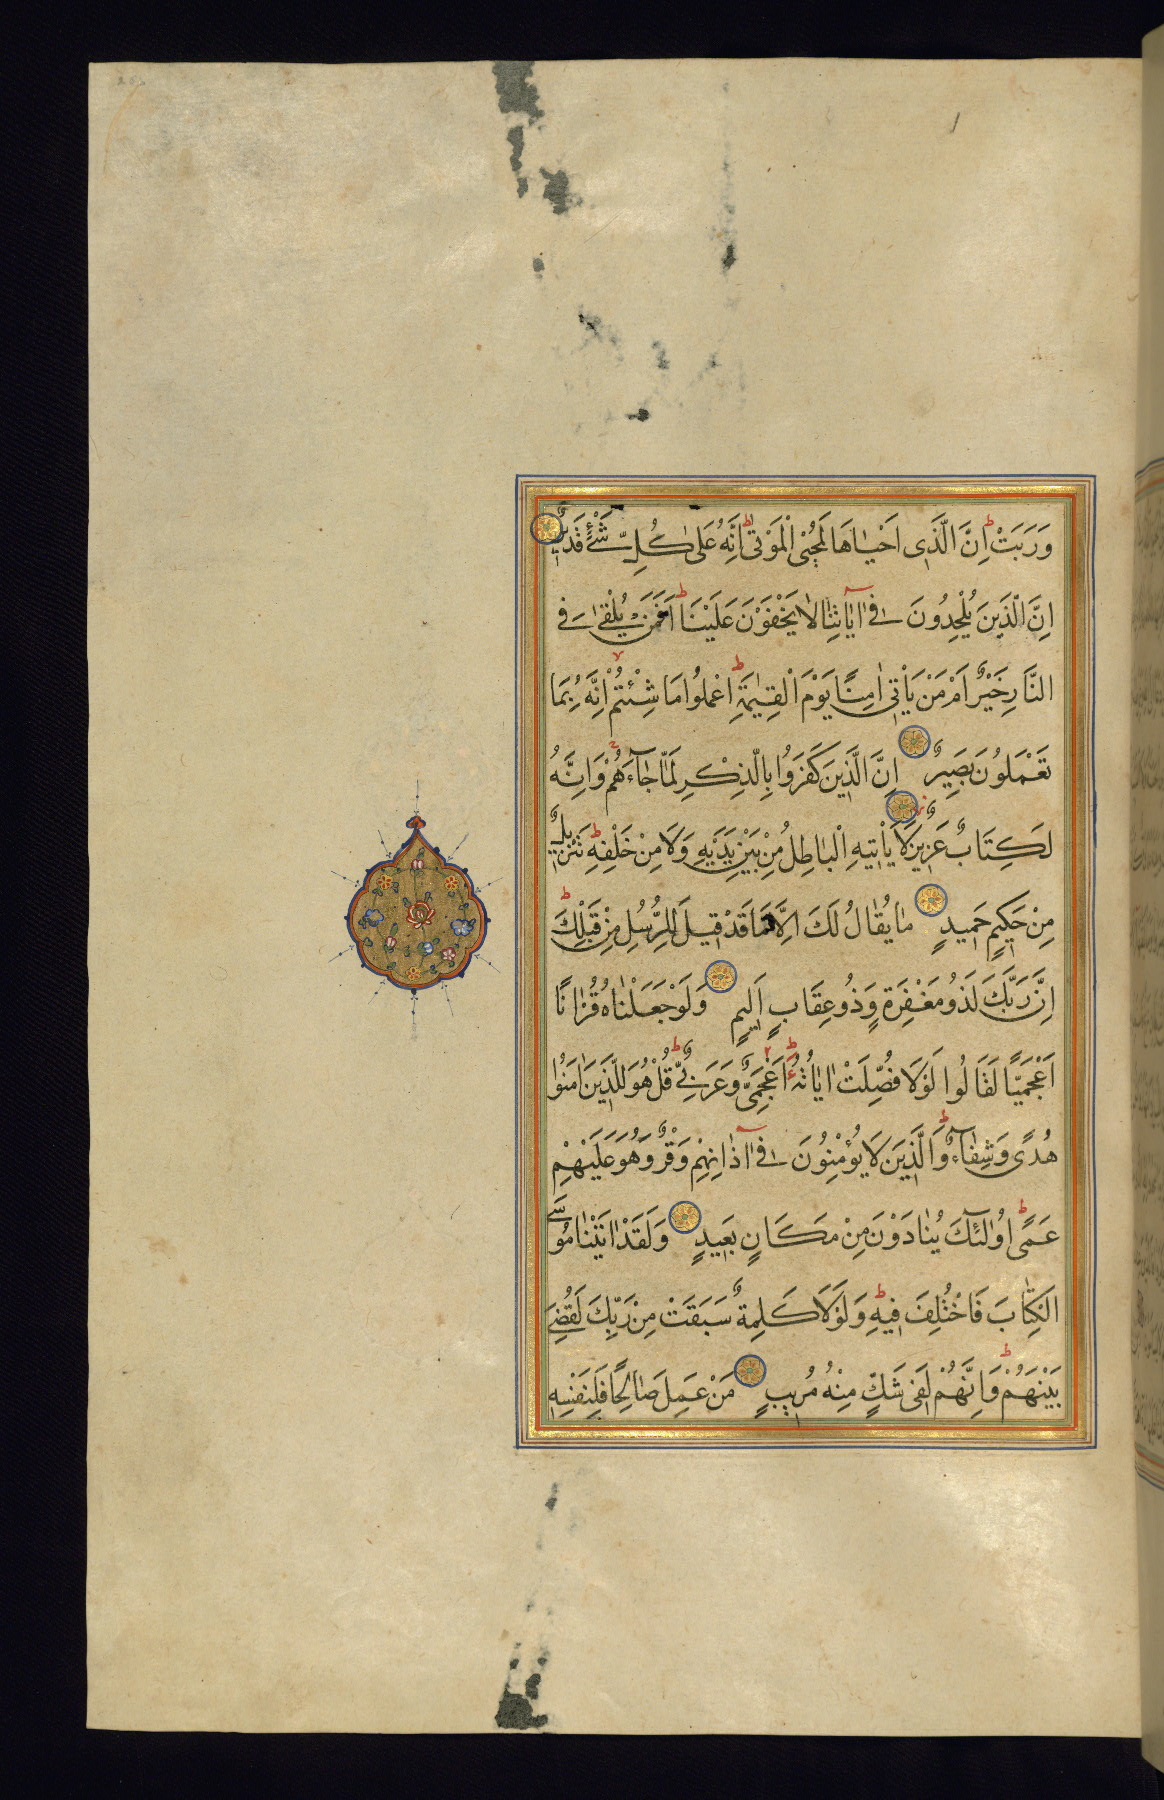 وَرَبَتْ ط اِنَّ الَّذٖى اَحْيٰاهَا لَمُحْيِى الْمَوْتٰى ط اِنَّهُ عَلٰى كُلِّ شَىْءٍ قَدٖيرٌ
اِنَّ الَّذٖينَ يُلْحِدُونَ فٖى اٰيٰاتِنٰا لٰا يَخْفَوْنَ عَلَيْنَا ط اَفَمَنْ يُلْقٰى فِى
النَّارِ خَيْرٌ اَمْ مَنْ يَاْتٖى اٰمِنًا يَوْمَ الْقِيٰمَةِ ط اِعْمَلُوا مَا شِئْتُمْ اِنَّهُ بِمَا
تَعْمَلُونَ بَصٖيرٌ اِنَّ الَّذٖينَ كَفَرُوا بِالذِّكْرِ لَمّٰا جٰاءَهُمْ وَاِنَّهُ
لَكِتَابٌ عَزٖيزٌ لَا يَاْتٖيهِ الْبٰاطِلُ مِنْ بَيْنِ يَدَيْهِ وَلَا مِنْ خَلْفِهٖ ط تَنْزٖيلٌ
مِنْ حَكٖيمٍ حَمٖيدٍ مٰا يُقٰالُ لَكَ اِلَّا مَا قَدْ قٖيلَ لِلرُّسُلِ مِنْ قَبْلِكَ ط
اِنَّ رَبَّكَ لَذُو مَغْفِرَةٍ وَذُو عِقَابٍ اَلٖيمٍ وَلَوْ جَعَلْنٰاهُ قُرْاٰنًا
اَعْجَمِيًّا لَقَالُوا لَوْلَا فُصِّلَتْ اٰيٰاتُهُ ط ءَاَعْجَمِىٌّ وَعَرَبِىٌّ ط قُلْ هُوَ لِلَّذٖينَ اٰمَنُوا
هُدًى وَشِفٰاءٌ ط وَالَّذٖينَ لَا يُؤْمِنُونَ فٖى اٰذٰانِهِمْ وَقْرٌ وَهُوَ عَلَيْهِمْ
عَمًى ط اُولٰئِكَ يُنٰادَوْنَ مِنْ مَكَانٍ بَعٖيدٍ وَلَقَدْ اٰتَيْنٰا مُوسَى
الْكِتٰابَ فَاخْتُلِفَ فٖيهِ ط وَلَوْلَا كَلِمَةٌ سَبَقَتْ مِنْ رَبِّكَ لَقُضِىَ
بَيْنَهُمْ ط وَاِنَّهُمْ لَفٖى شَكٍّ مِنْهُ مُرٖيبٍ مَنْ عَمِلَ صٰالِحًا فَلِنَفْسِهٖ